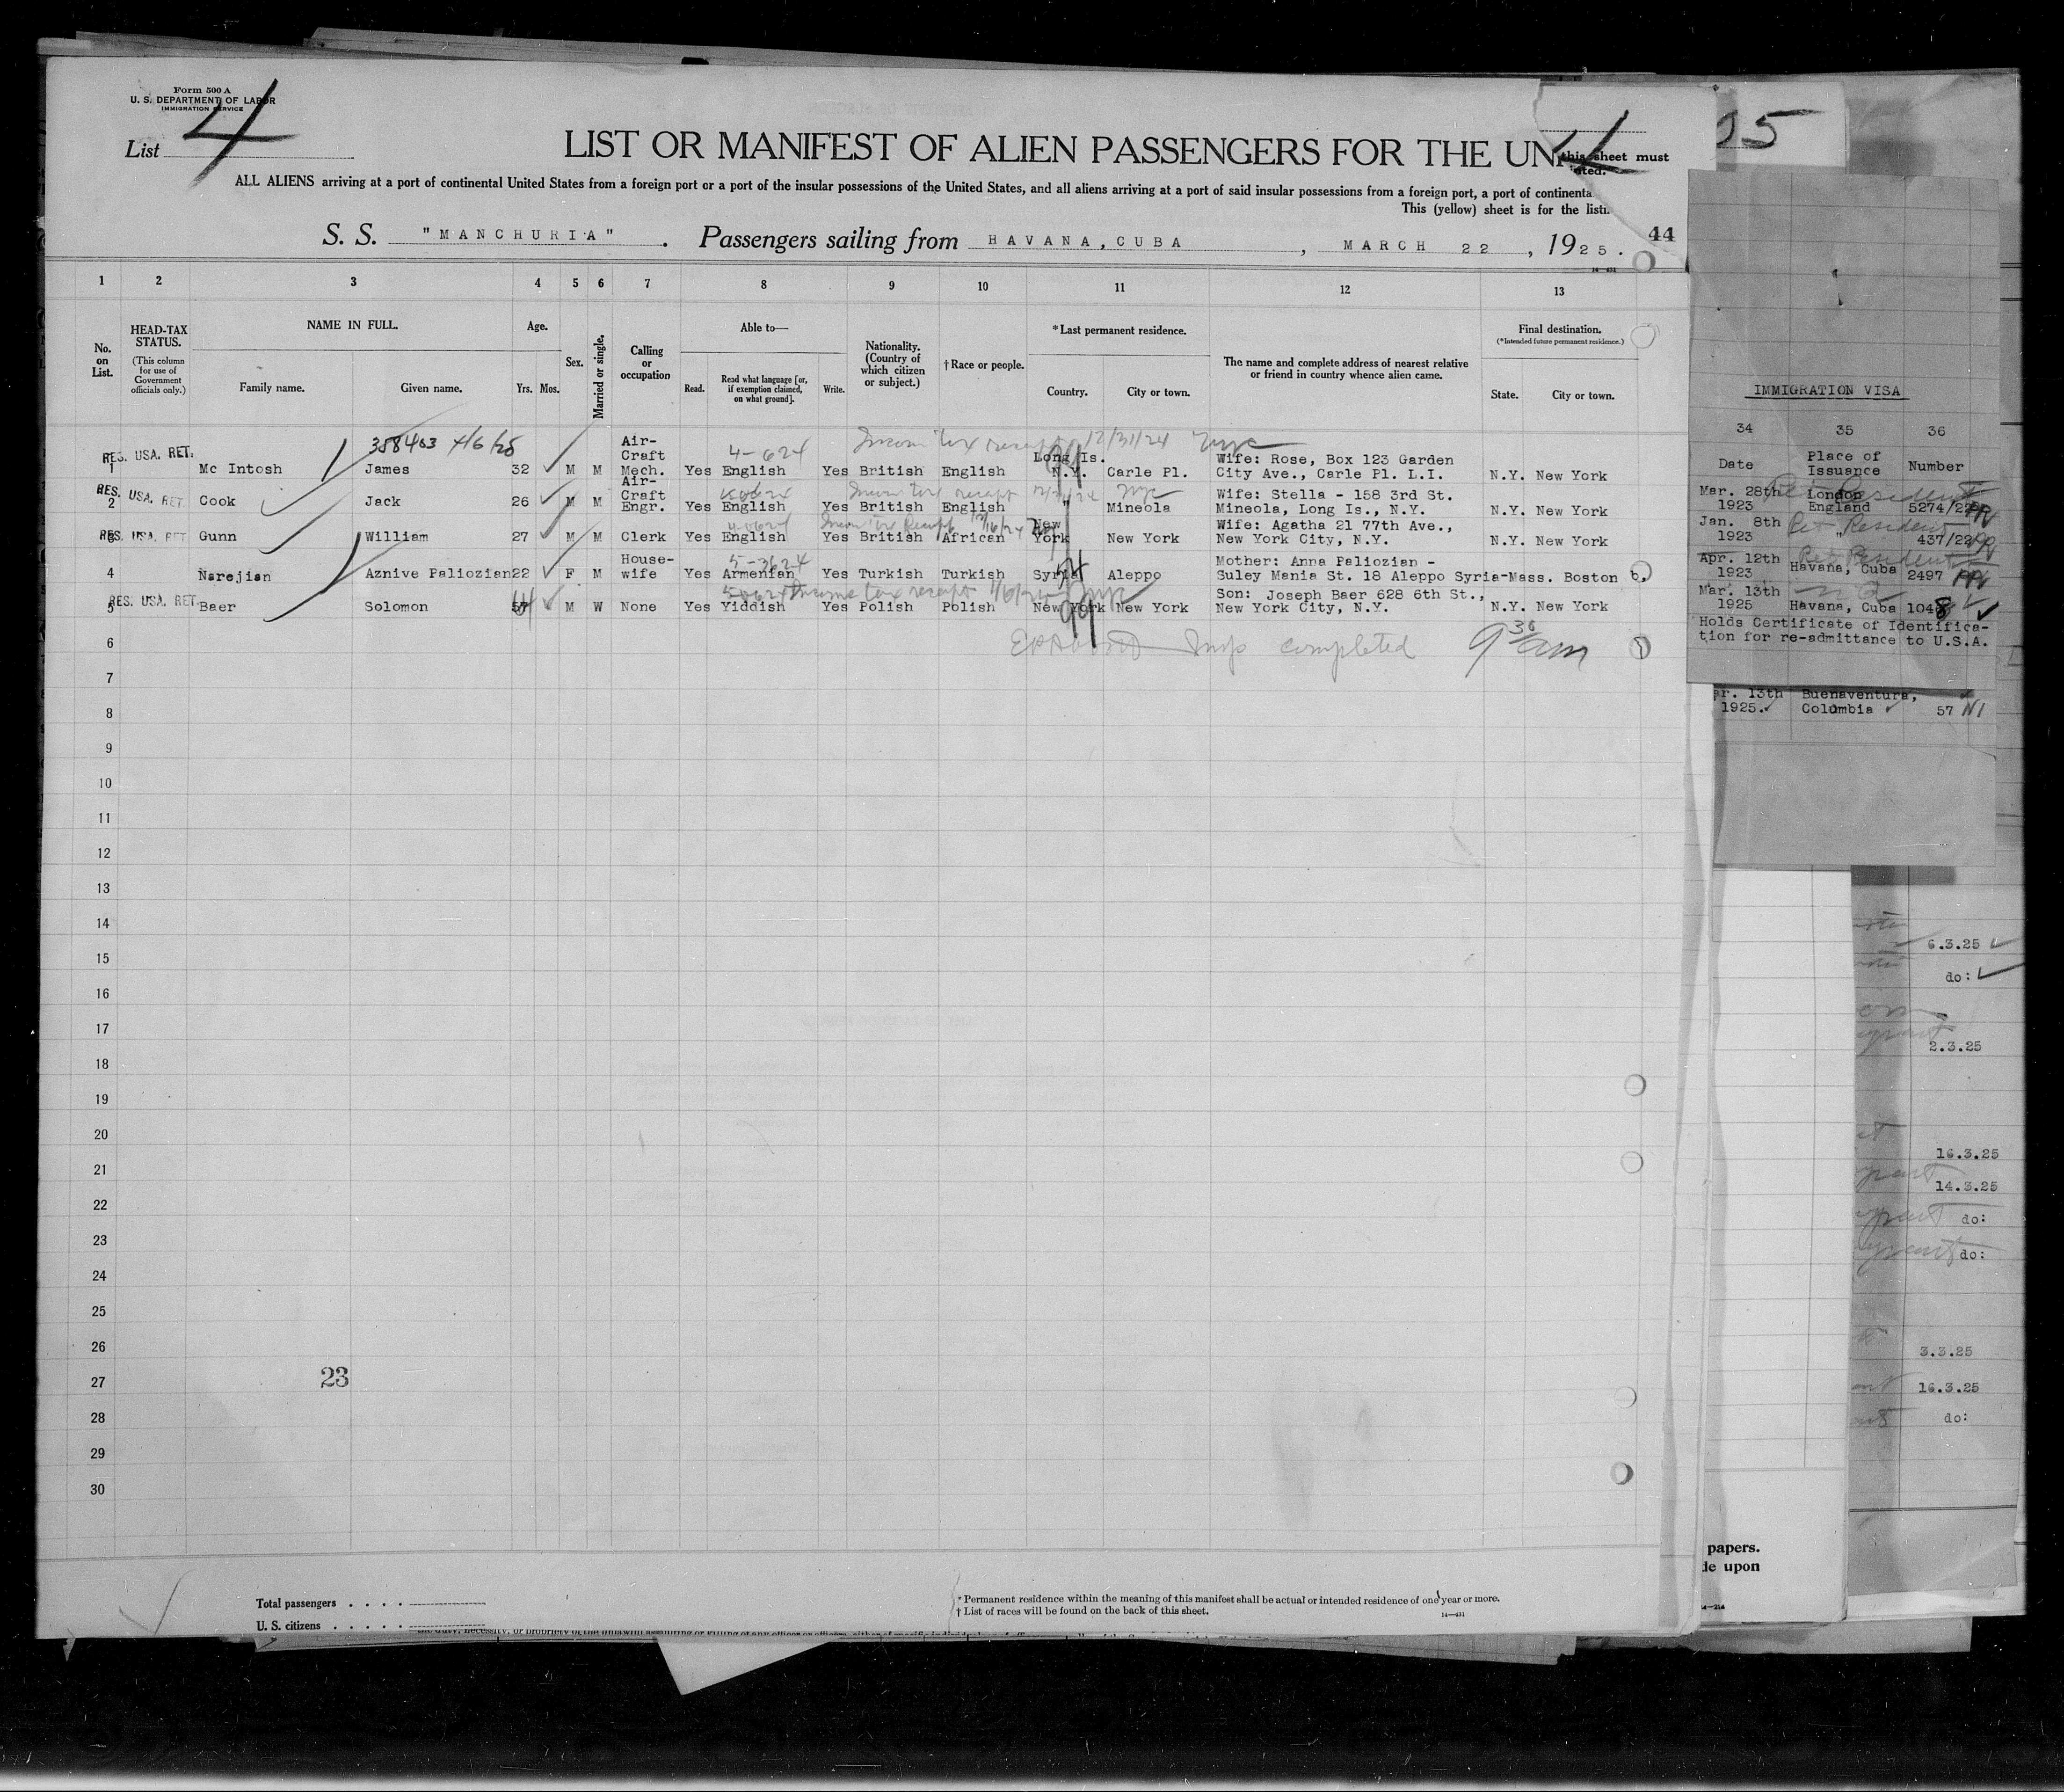 Form 500 A
U. S. DEPARTMENT OF LABOR
IMMIGRATION SERVICE
List 4
LIST OR MANIFEST OF ALIEN PASSENGERS FOR THE UNI
this sheet must
ALL ALIENS arriving at a port of continental United States from a foreign port or a port of the insular possessions of the United States, and all aliens arriving at a port of said insular possessions from a foreign port, a port of continenta
This (yellow) sheet is for the listi
S. S. "MANCHURIA". Passengers sailing from HAVANA, CUBA, MARCH 22, 1925.
44
05
1 2 3 4 5 6 7 8 9 10 11 12 13
No. on List.
HEAD-TAX STATUS.
(This column for use of Government officials only.)
NAME IN FULL.
Family name. Given name.
Age.
Yrs. Mos.
Sex.
Married or single.
Calling or occupation
Able to—
Read. Read what language [or, if exemption claimed, on what ground]. Write.
Nationality. (Country of which citizen or subject.)
†Race or people.
*Last permanent residence.
Country. City or town.
The name and complete address of nearest relative or friend in country whence alien came.
Final destination.
(*Intended future permanent residence.)
State. City or town.
IMMIGRATION VISA
34 35 36
Date Place of Issuance Number
358403 4/6/25
4-624 Income tax receipt 12/31/24
RES. USA. RET.
1 Mc Intosh James 32 M M Air-Craft Mech. Yes English Yes British English Long Is. N.Y. Carle Pl. Wife: Rose, Box 123 Garden City Ave., Carle Pl. L.I. N.Y. New York
Mar. 28th 1923 London England 5274/22
RES. USA. RET
Income tax receipt
2 Cook Jack 26 M M Air-Craft Engr. Yes English Yes British English " Mineola Wife: Stella - 158 3rd St. Mineola, Long Is., N.Y. N.Y. New York
Jan. 8th 1923 " 437/22
RES. USA. RET
Income tax Receipt
3 Gunn William 27 M M Clerk Yes English Yes British African New York New York Wife: Agatha 21 77th Ave., New York City, N.Y. N.Y. New York
Apr. 12th 1923 Havana, Cuba 2497
5-3624
4 Narejian Aznive Paliozian 22 F M House-wife Yes Armenian Yes Turkish Turkish Syria Aleppo Mother: Anna Paliozian - Suley Mania St. 18 Aleppo Syria-Mass. Boston
Mar. 13th 1925 Havana, Cuba 1048
RES. USA. RET.
Income tax receipt
5 Baer Solomon 57 M W None Yes Yiddish Yes Polish Polish New York New York Son: Joseph Baer 628 6th St., New York City, N.Y. N.Y. New York
Holds Certificate of Identifica-
tion for re-admittance to U.S.A.
Insp completed 9 30 am
6
7
ar. 13th Buenaventura,
1925. Colombia 57 NI
8
9
10
11
12
13
14
6.3.25
15
do:
16
17
2.3.25
18
19
20
16.3.25
21
14.3.25
22
do:
23
do:
24
25
26
3.3.25
23
27
16.3.25
28
do:
29
30
papers.
de upon
Total passengers . . . .
U. S. citizens . . . . .
* Permanent residence within the meaning of this manifest shall be actual or intended residence of one year or more.
† List of races will be found on the back of this sheet.
14—431